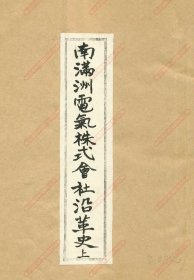 南滿洲電氣株式會社沿革史 上